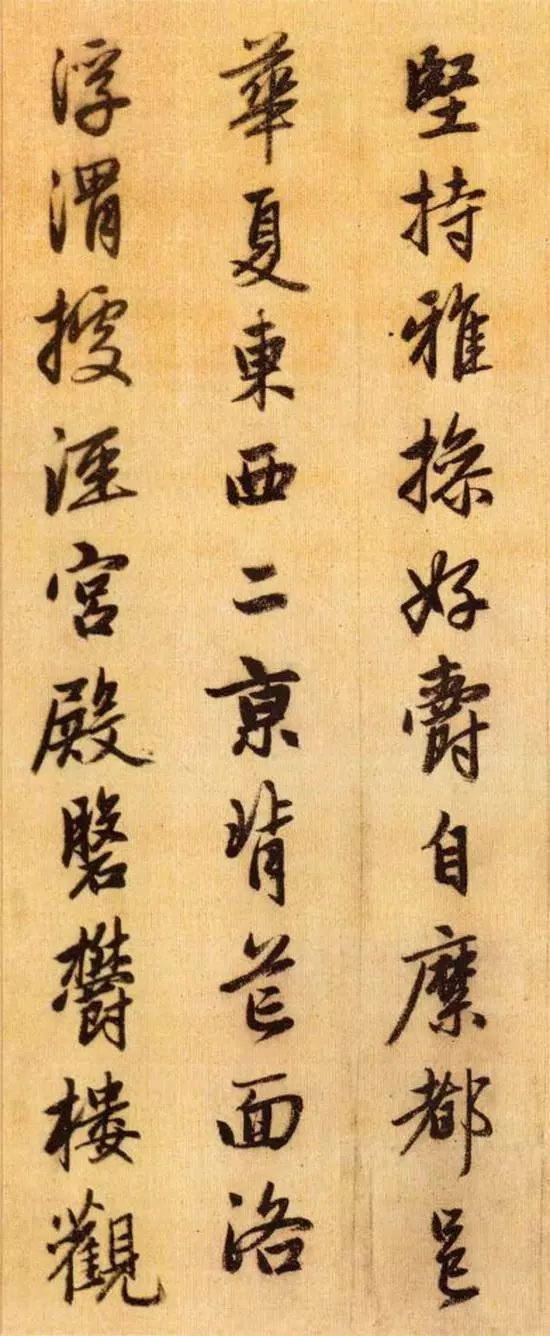 堅持雅操好爵自縻都邑
華夏東西二京背芒面洛
浮渭據涇宮殿盤鬱樓觀